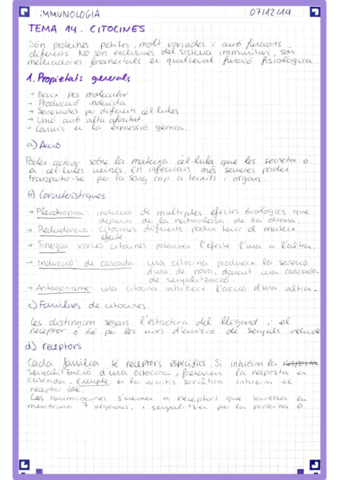 IMMUNOLOGIA 07/12/19
TEMA 14. CITOCINES
Són proteïnes petites, molt variades i amb funcions
diferents. NO són exclusives del sistema immunitari, són
mediadores fonamentals en qualsevol funció fisiològica.
1. Propietats generals
→ Baix pes molecular
→ Producció induïda
→ Secretades per diferents cèl·lules
→ Unió amb alta afinitat
→ Canvis en la expressió gènica.
a) Acció
Poden actuar sobre la mateixa cèl·lula que les secreta o
en cèl·lules veïnes. En infeccions més severes poden
transportar-se per la sang cap a teixits i òrgans.
b) Característiques
→ Pleiotropia: inducció de múltiples efectes biològics que
depenen de la naturalesa de la diana.
→ Redundància: citocines diferents poden tenir el mateix
efecte
→ Sinergia: vàries citocines potencien l'efecte l'una a l'altra.
→ Inducció de cascada: una citocina produeix la secreció
d'una de nova, davant una cascada
de senyalització.
→ Antagonisme: una citocina inhibeix l'acció d'una altra.
c) Famílies de citocines.
Les distingim segons l'estructura del lligand i el
receptor o bé per les vies d'emissió de senyals induïdes
d) receptors
Cada família té receptors específics. Si inhibim la
senyalització d'una citocina, frenarem la resposta en
cascada. Exemple: en la artritis inhibim el
receptor
Les quimiocines s'uneixen a receptors que travessen la
membrana 7 vegades, i senyalitzen per la proteïna G